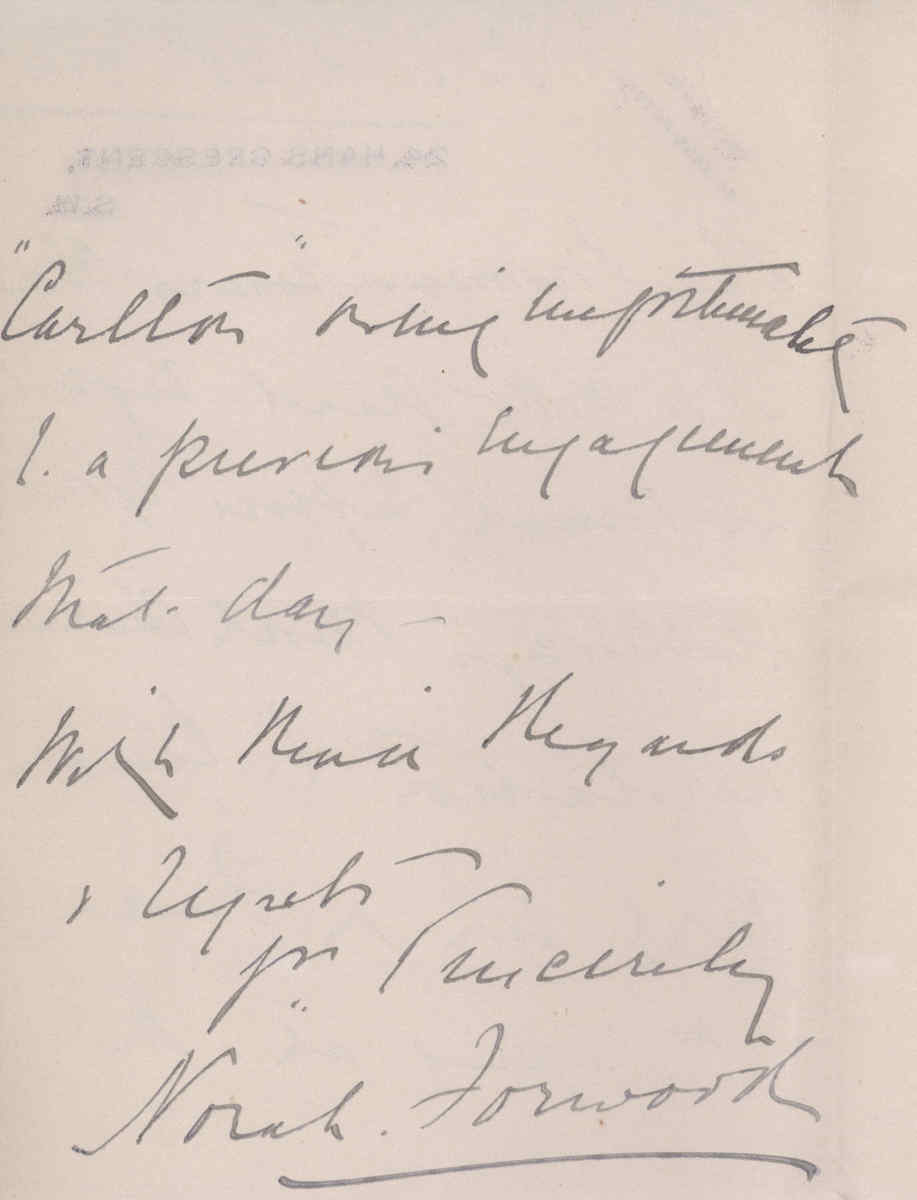 "Carlton" owing unfortunately
to a previous engagement
that day –
With kind regards
& regrets
yrs sincerely
Norah Forwood
24, HANS CRESCENT,
S.W.